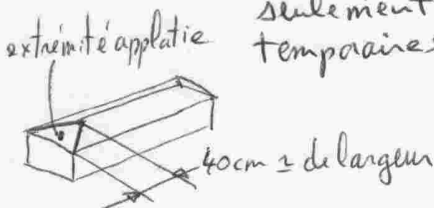 seulement
extrémité applatie
temporaire
40cm ± de largeur